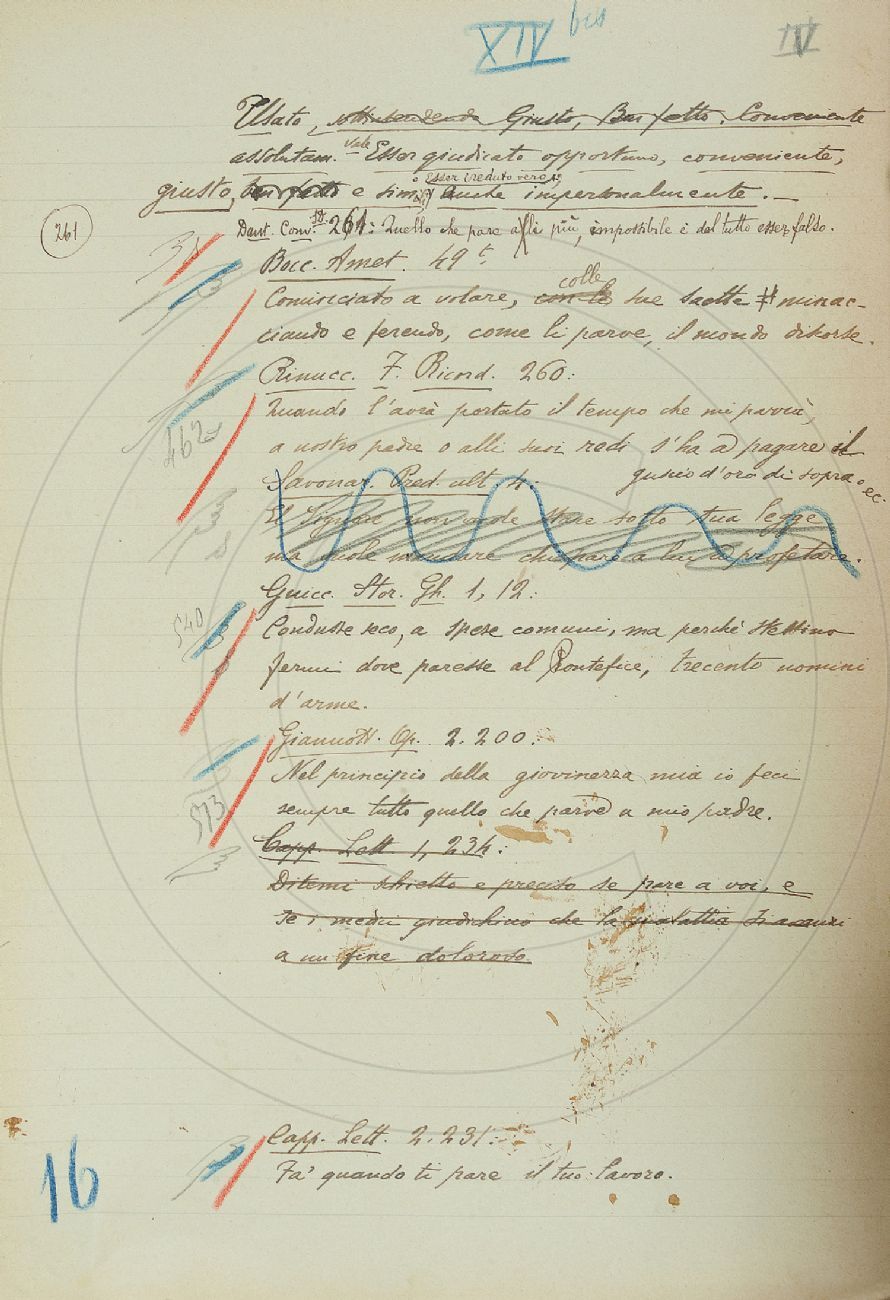 XIV bis
IV
Usato, sottintendendo Giusto, Ben fatto, Conveniente
assolutam. vale Esser giudicato opportuno, conveniente,
o Esser creduto vero,
giusto, ben fatto e simili, Anche impersonalmente. –
261
Dant. Conv. 261: Quello che pare alli più, impossibile è del tutto esser falso.
Bocc. Amet. 49t.
colle
Cominciato a volare, con le sue saette minac-
ciando e ferendo, come li parve, il mondo discorse.
Rinucc. F. Ricord. 260:
Quando l'avrà portato il tempo che mi parrà,
462
a nostro padre o alli suoi redi s'ha a pagare il
guscio d'oro di sopra ec.
Savonar. Pred. ult. 4:
El Signore non vede stare sotto tua legge
ma vuole mandare chi pare a lui a profetare.
Guicc. Stor. Gh. 1, 12:
540
Condusse seco, a spese comuni, ma perchè stessino
fermi dove paresse al Pontefice, trecento uomini
d'arme.
Giannott. Op. 2. 200:
Nel principio della giovinezza mia io feci
513
sempre tutto quello che parve a mio padre.
Capp. Lett. 1, 234:
Ditemi schietto e preciso se pare a voi, e
se i medici giudichino che la malattia
a un fine doloroso.
Capp. Lett. 2. 231:
16
Fa' quando ti pare il tuo lavoro.